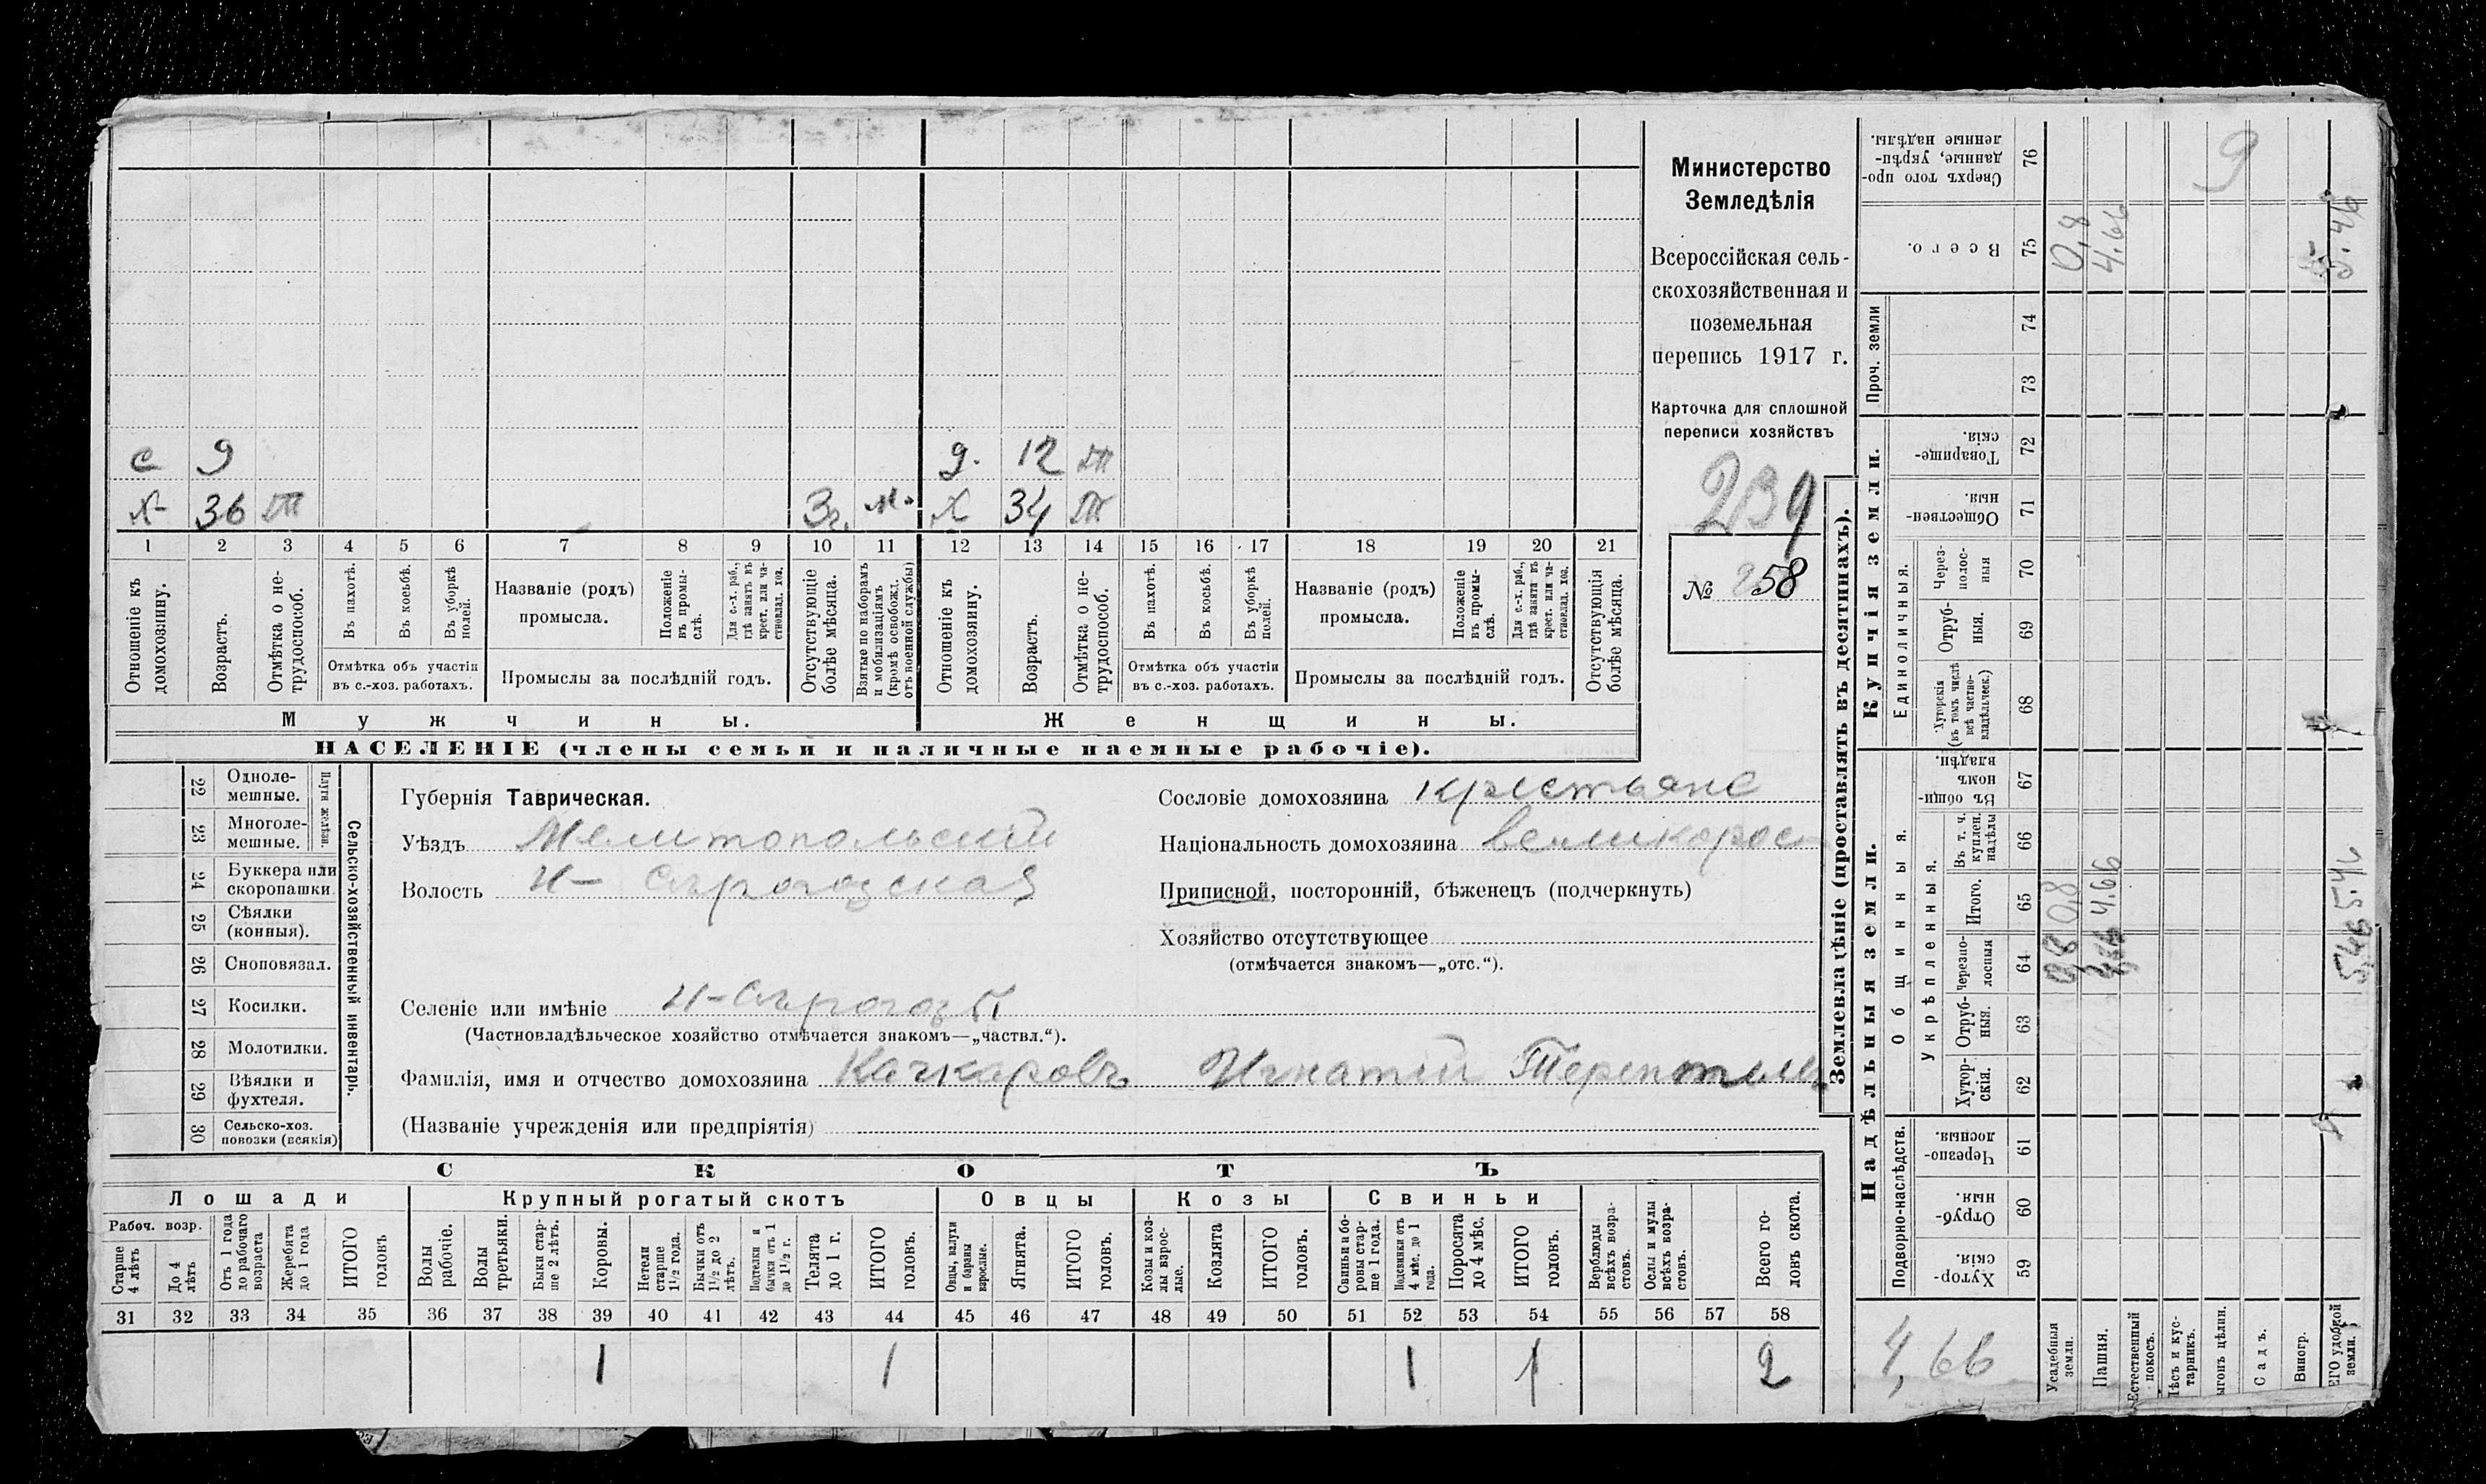 Министерство
Земледѣлія
Всероссійская сель-
скохозяйственная и
поземельная
перепись 1917 г.
Карточка для сплошной
переписи хозяйствъ
239
№ 258
с 9 д. 12 т
х 36 т 3г. м. х 34 т
1 2 3 4 5 6 7 8 9 10 11 12 13 14 15 16 17 18 19 20 21
Отношеніе къ домохозяину.
Возрастъ.
Отмѣтка о не-трудоспособ.
Въ пахотѣ.
Въ косьбѣ.
Въ уборкѣ полей.
Отмѣтка объ участіи
въ с.-хоз. работахъ.
Названіе (родъ)
промысла.
Положеніе въ промы-слѣ.
Для с.-х. раб., гдѣ занятъ въ крест. или ча-стновлад. хоз.
Промыслы за послѣдній годъ.
Отсутствующіе болѣе мѣсяца.
Взятые по наборамъ и мобилизаціямъ (кромѣ освобожд. отъ военной службы)
Отношеніе къ домохозяину.
Возрастъ.
Отмѣтка о не-трудоспособ.
Въ пахотѣ.
Въ косьбѣ.
Въ уборкѣ полей.
Отмѣтка объ участіи
въ с.-хоз. работахъ.
Названіе (родъ)
промысла.
Положеніе въ промы-слѣ.
Для с.-х. раб., гдѣ занята въ крест. или ча-стновлад. хоз.
Промыслы за послѣдній годъ.
Отсутствующія болѣе мѣсяца.
Мужчины. Женщины.
НАСЕЛЕНІЕ (члены семьи и наличные наемные рабочіе).
Сельско-хозяйственный инвентарь.
Плуги желѣзн.
22 Одноле-
мешные.
23 Многоле-
мешные.
24 Буккера или
скоропашки
25 Сѣялки
(конныя).
26 Сноповязал.
27 Косилки.
28 Молотилки.
29 Вѣялки и
фухтеля.
30 Сельско-хоз.
повозки (всякія)
Губернія Таврическая.
Уѣздъ Мелитопольскій
Волость Н-Сѣрогозская
Селеніе или имѣніе Н-Сѣрогозы
(Частновладѣльческое хозяйство отмѣчается знакомъ—„частвл.“).
Фамилія, имя и отчество домохозяина Качкаровъ Игнатій
(Названіе учрежденія или предпріятія)
Сословіе домохозяина крестьяне
Національность домохозяина великорос
Приписной, посторонній, бѣженецъ (подчеркнуть)
Хозяйство отсутствующее
(отмѣчается знакомъ—„отс.“).
СКОТЪ
Лошади Крупный рогатый скотъ Овцы Козы Свиньи
Рабоч. возр.
Старше 4 лѣтъ
До 4 лѣтъ
Отъ 1 года до рабочаго возраста
Жеребята до 1 года
ИТОГО головъ
Волы рабочіе.
Волы третьяки.
Быки стар-ше 2 лѣтъ.
Коровы.
Нетели старше 1½ года.
Бычки отъ 1½ до 2 лѣтъ.
Подтелки и бычки отъ 1 до 1½ г.
Телята до 1 г.
ИТОГО головъ.
Овцы, валухи и бараны взрослые.
Ягнята.
ИТОГО головъ.
Козы и коз-лы взрос-лые.
Козлята
ИТОГО головъ.
Свиньи и бо-ровы стар-ше 1 года.
Подсвинки отъ 4 мѣс. до 1 года.
Поросята до 4 мѣс.
ИТОГО головъ.
Верблюды всѣхъ возра-стовъ.
Ослы и мулы всѣхъ возра-стовъ.
Всего го-ловъ скота.
31 32 33 34 35 36 37 38 39 40 41 42 43 44 45 46 47 48 49 50 51 52 53 54 55 56 57 58
1 1 1 1 2
Землевладѣніе (проставлять въ десятинахъ).
Надѣльныя земли. Купчія земли. Проч. земли
Подворно-наслѣдств.
Общинныя.
Укрѣпленныя.
Единоличныя.
59 Хутор-скія
60 Отруб-ныя.
61 Черезпо-лосныя.
62 Хутор-скія.
63 Отруб-ныя.
64 Черезпо-лосныя
65 Итого.
66 Въ т. ч. куплен. надѣлы
67 Въ общи-номъ владѣн.
68 Хуторскія (въ томъ числѣ всѣ частно-владѣльческ.)
69 Отруб-ныя.
70 Через-полос-ныя
71 Обществен-ныя.
72 Товарище-скія.
73
74
75 Всего.
76 Сверхъ того про-данные, укрѣп-ленные надѣлы.
Усадебныя земли. 0,8 0,8 0,8
Пашня. 4.66 4.66
Естественный покосъ.
Лѣсъ и кус-тарникъ.
ыгонъ цѣлин.
Садъ.
Виногр.
ЕГО удобной земли. 5,46 5.46 5.46
9
4,66